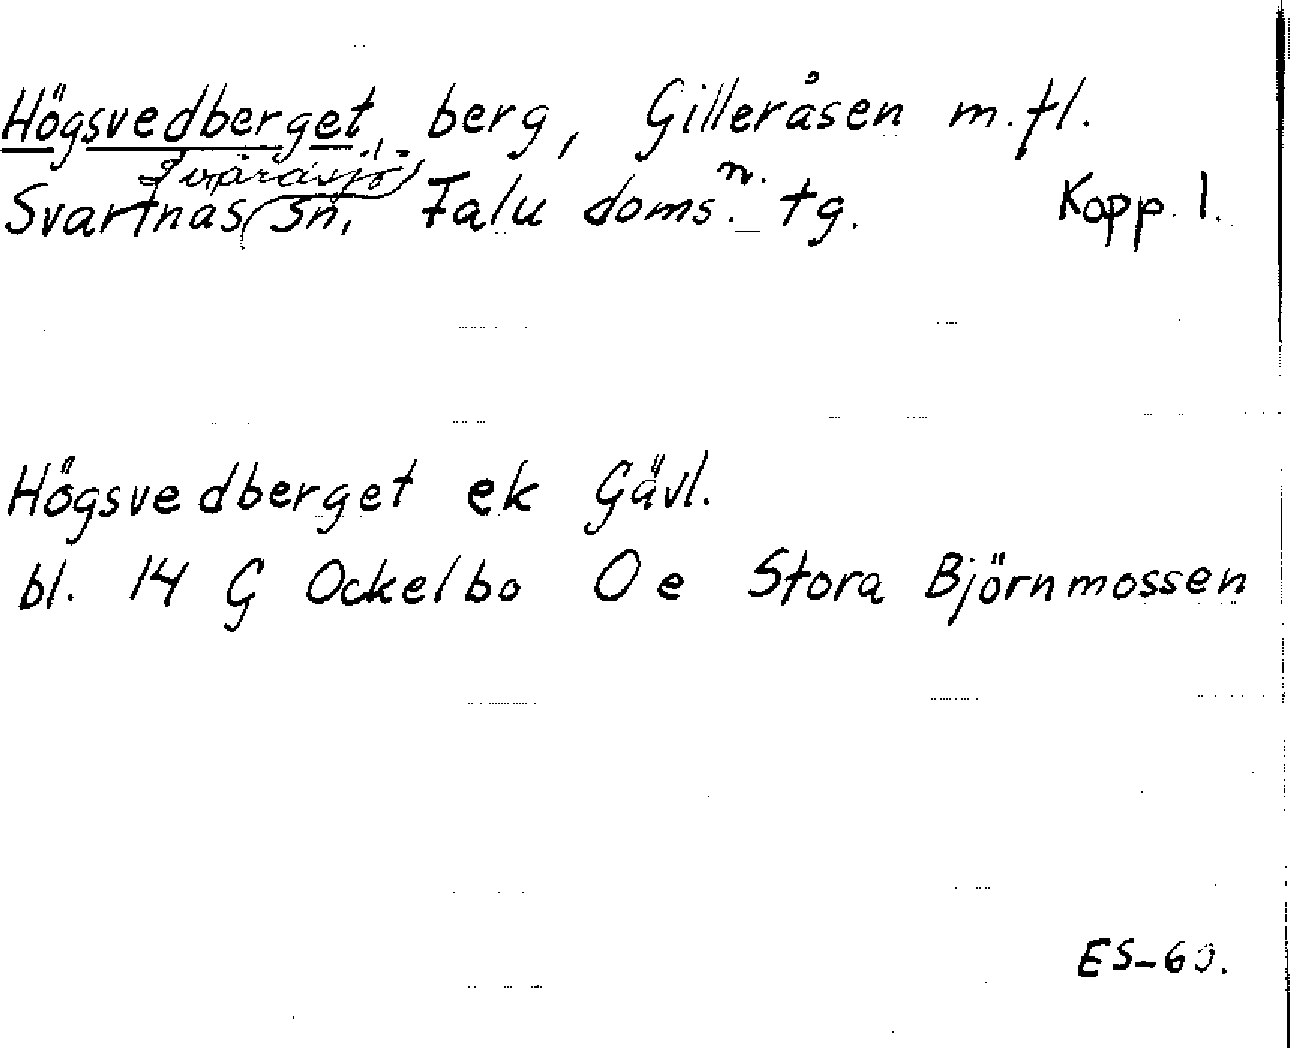 Högsvedberget, berg, Gilleråsen m.fl.
Svärdsjö
Svartnäs sn, Falu doms. n. tg. Kopp. l.
Högsvedberget ek Gävl.
bl. 14 G Ockelbo O e Stora Björnmossen
ES-60.